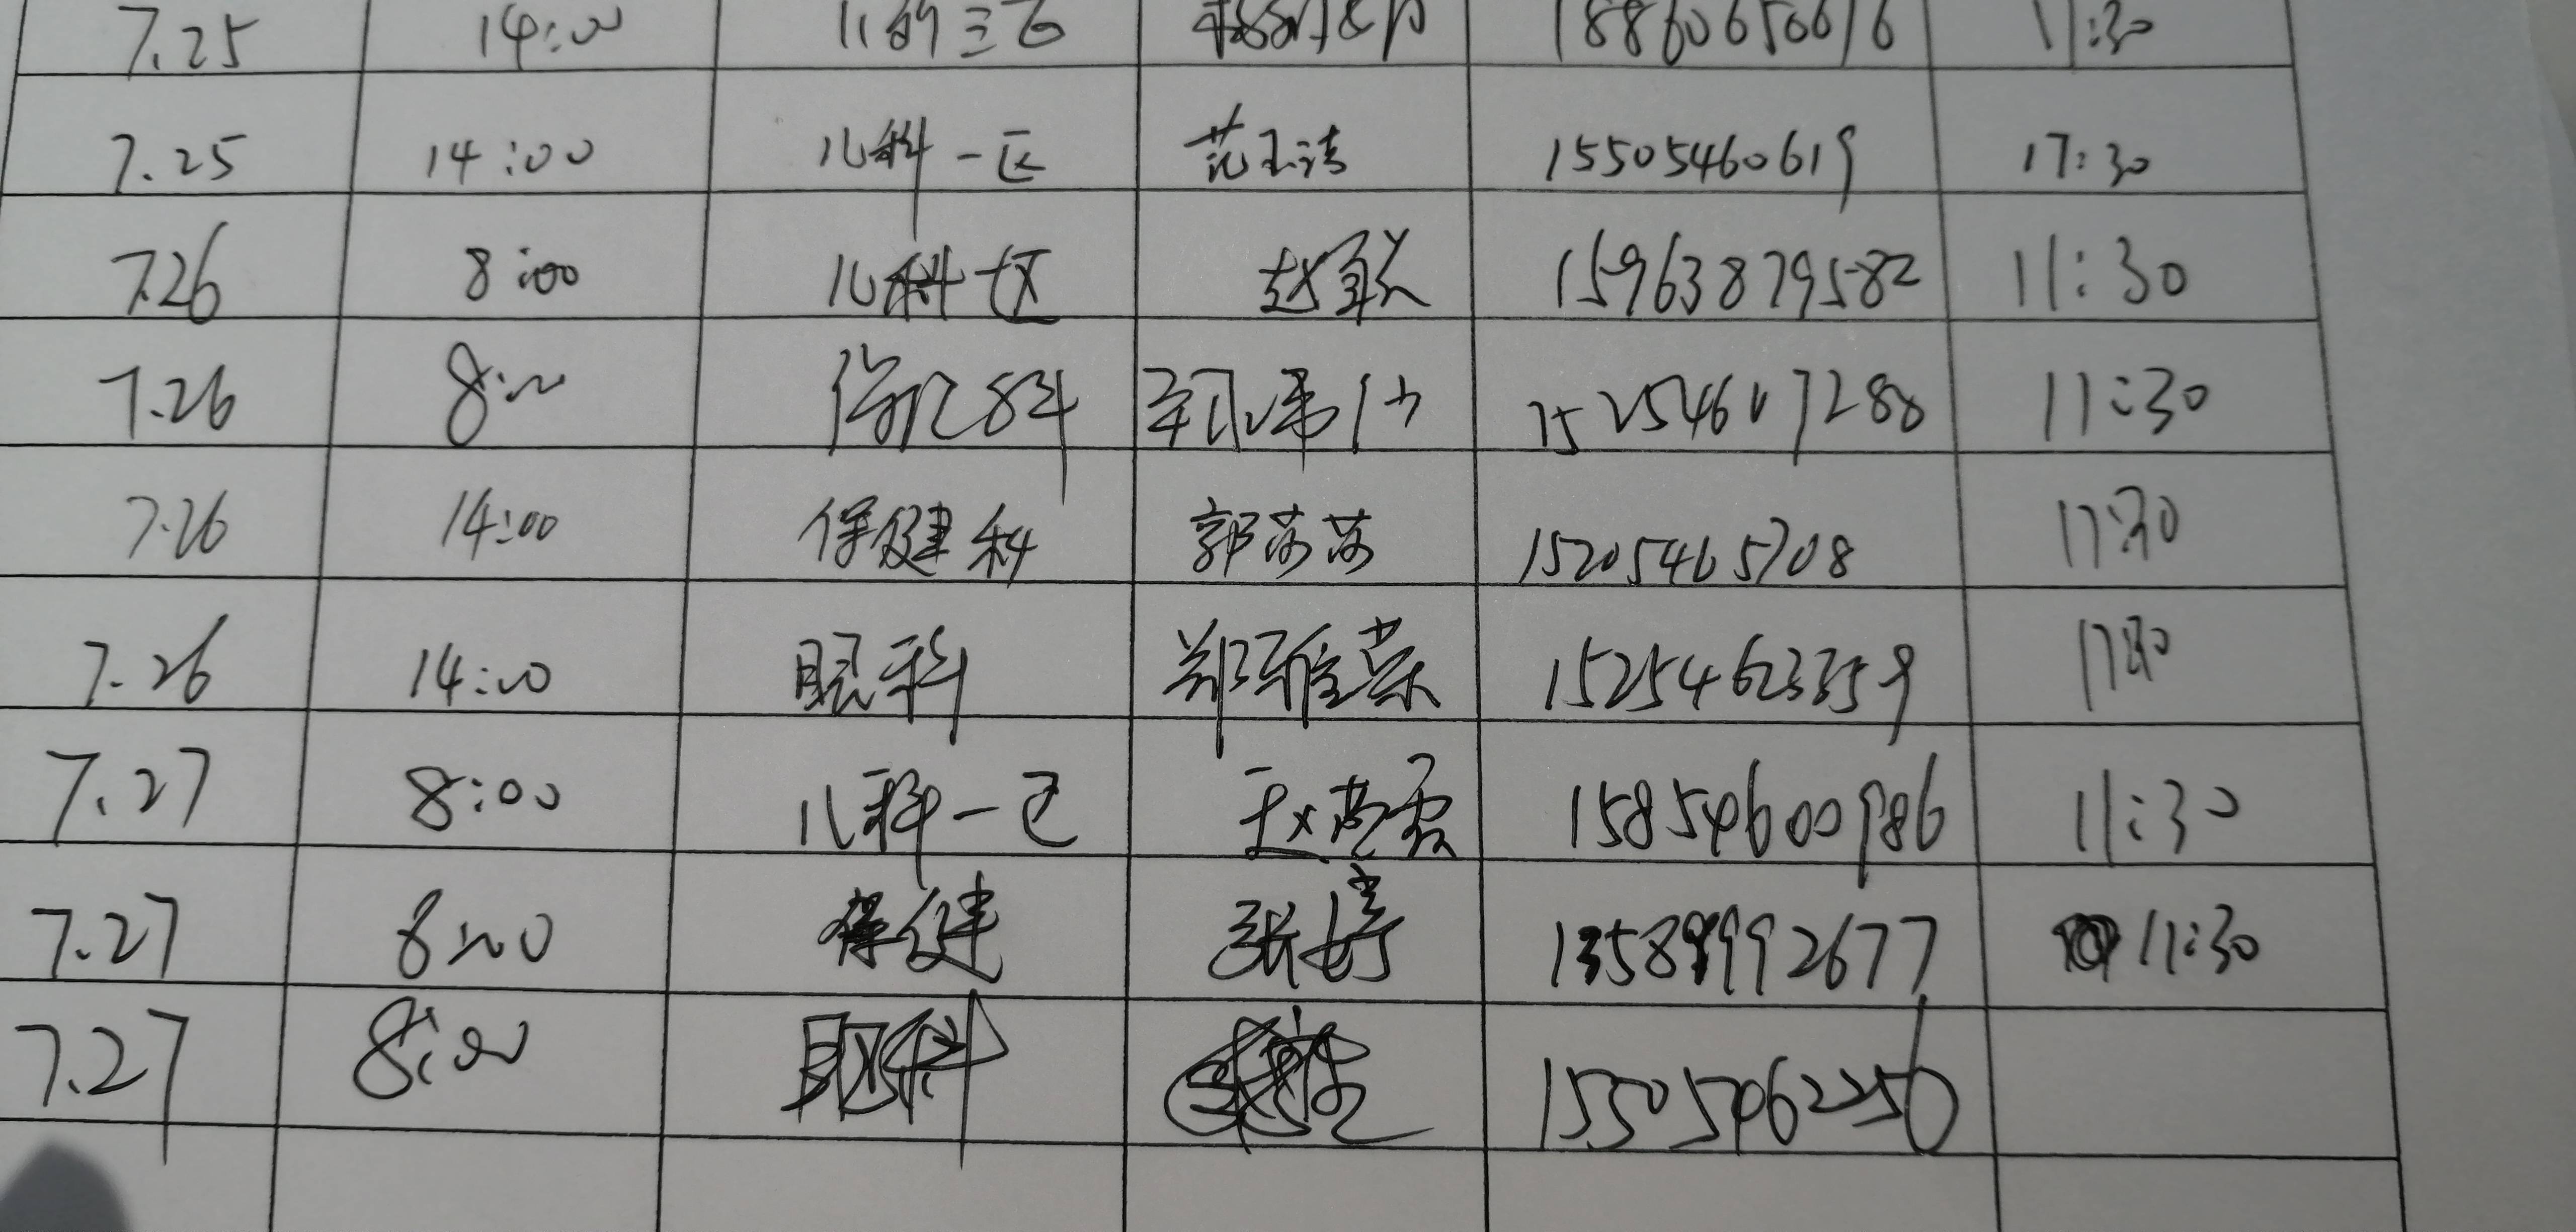 7.25 14:00 18860656616 11:30
7.25 14:00 儿科一区 范玉洁 15505460619 17:30
7.26 8:00 儿科一区 赵敏 15963879582 11:30
7.26 8:00 11:30
7.26 14:00 保健科 郭莎莎 15205465708 17:30
7.26 14:00 眼科 郑雅荣 15254623359 17:30
7.27 8:00 儿科一区 15854600986 11:30
7.27 8:00 保健 张婷 13589992677 11:30
7.27 8:00 眼科 15505462256